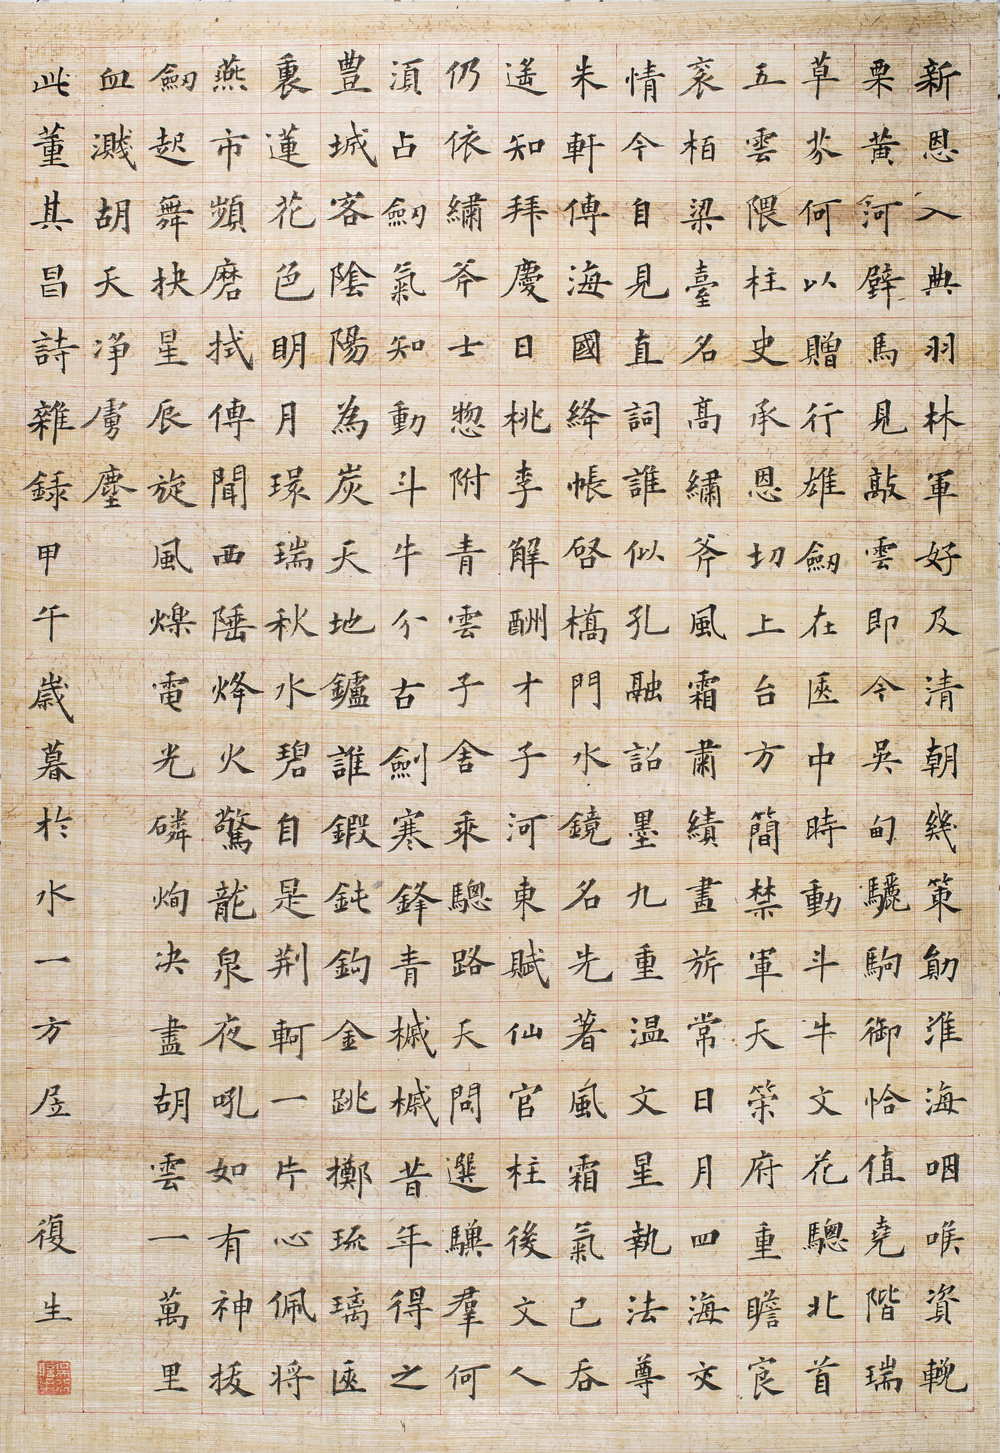 新恩入典羽林軍好及清朝幾策勛淮海咽喉資輓
栗黄河騂馬見敲雲即今吳甸驪駒御恰值堯階瑞
草芬何以贈行雄劒在匧中時動斗牛文花驄北首
五雲隈柱史承恩切上台方簡禁軍天策府重瞻
衮栢梁臺名高繡斧風霜肅績畫旂常日月四海交
情今自見直詞誰似孔融詔墨九重温文星執法尊
朱軒傳海國絳帳啓橋門水鏡名先著風霜氣已吞
遥知拜慶日桃李解酬才子河東賦仙官柱後文人
仍依繡斧士惣附青雲子舍乘驄路天閑選驥羣何
湏占劒氣知動斗牛分古劍寒鋒青槭槭昔年得之
豊城客陰陽為炭天地鑪誰鍛鈍鉤金跳擲琉璃匧
裏蓮花色明月環瑞秋水碧自是荆軻一片心佩将
燕市頻磨拭傳聞西陲烽火驚龍泉夜吼如有神拔
劒起舞抉星辰旋風爍電光磷炯决盡胡雲一萬里
血濺胡天净虜塵
此董其昌詩雜録甲午歲暮於水一方居 復生